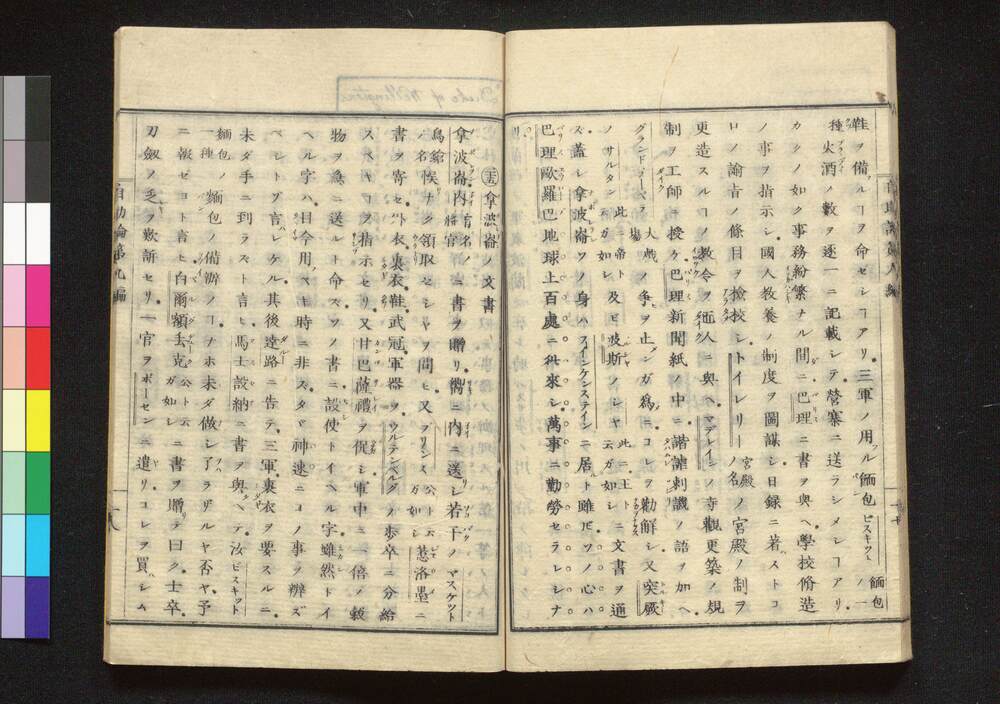 鞋ヲ備ルコヲ命セシコアリ三軍ノ用フル麵包ビスキツト麵包ノ一
種火酒ノ數ヲ逐一ニ記載シテ營寨ニ送ラシメシコアリ
カクノ如ク事務紛繁ナル間ニ巴理ニ書ヲ與ヘ學校脩造
ノ事ヲ指示シ國人教養ノ制度ヲ圖謀シ日錄ニ著ハストコ
ロノ諭旨ノ條目ヲ檢校シトイレリー宮殿ノ名ノ宮殿ノ制ヲ
更造スルコノ教令ヲ匠人ニ與ヘマデレインノ寺觀更築ノ規
制ヲ工師ニ授ケ巴理新聞紙ノ中ニ諧謔刺譏ノ語ヲ加ヘ
グランドヲペラ大戲場ノ爭ヲ止メンガ爲ニコレヲ勸解シ又突厥
ノサルタン此ニ帝ト云ガ如シ及ビ波斯ノシヤ此ニ王ト云ガ如シニ文書ヲ通
ズ蓋シ拿波崙ソノ身ハフインケンステインニ居ト雖ヒソノ心ハ
巴理歐羅巴地球上百處ニ往來シ萬事ニ勤勞セラレシナ
リ
㊄拿波崙ノ文書
拿波崙內有名ノ將官ニ書ヲ贈リ衢ニ內ニ送レシ若干ノマスケツト
鳥鎗ノ名恙ナク領取セシヤヲ問ヒ又プリンス公ト云ガ如シ惹洛墨ニ
書ヲ寄セ外衣裏衣鞋武冠軍器ヲウルテンベルグノ歩卒ニ分給
スベキコヲ指示セリ又甘巴薩禮ヲ促シ軍中ニ一倍ノ穀
物ヲ急ニ送ルト命ズソノ書ニ設使トイヘル字雖然トイ
ヘル字ハ目今用フベキ時ニ非ズタヾ神速ニコノ事ヲ辨ズ
ベシトゾ言ハレケル其後達路ニ告テ三軍裏衣ヲ要スルニ
未ダ手ニ到ラズト言ヒ馬士設納ニ書ヲ與ヘテ汝ビスキット
麵包ノ一種麵包ノ備辨ノコナホ未ダ做シ了ラザルヤ否ヤ予
ニ報ゼコト言ヒ白爾額去克公ト云ガ如シニ書ヲ贈テ曰ク士卒
刀劔ノ乏ヲ歎訴セリ一官ヲポーセンニ遣リコレヲ買ハシム
自助論第九編
十八